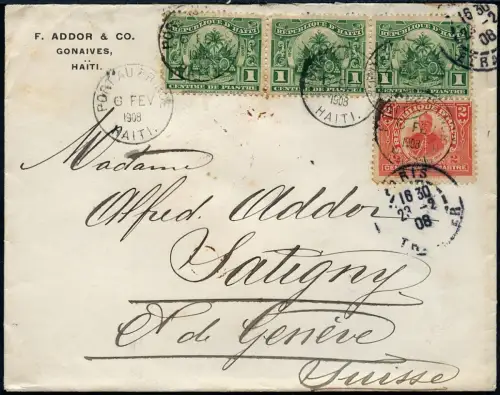 F. ADDOR & CO.
GONAIVES,
HAÏTI.
REPUBLIQUE D'HAITI
1 CENTIME DE PIASTRE 1
REPUBLIQUE D'HAITI
1 CENTIME DE PIASTRE 1
REPUBLIQUE D'HAITI
1 CENTIME DE PIASTRE 1
REPUBLIQUE D'HAITI
2
CENTIMES DE PIASTRE
PORT-AU-PRINCE
6 FEV
1908
HAITI.
1908
HAITI.
FE
1908
16 30
08
PARIS
16 30
23 - 2
08
ETRANGER
Madame
Alfred Addor
Satigny
Ct de Genève
Suisse